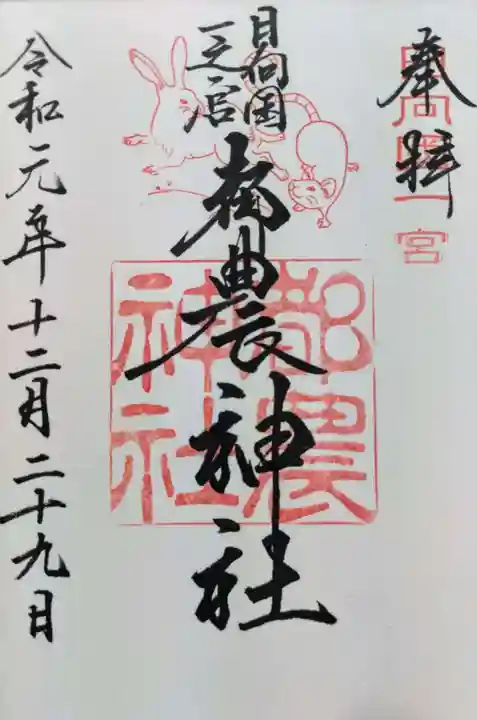 奉拝
日向國一宮
日向国
一之宮
都農神社
都農
神社
令和元年十二月二十九日